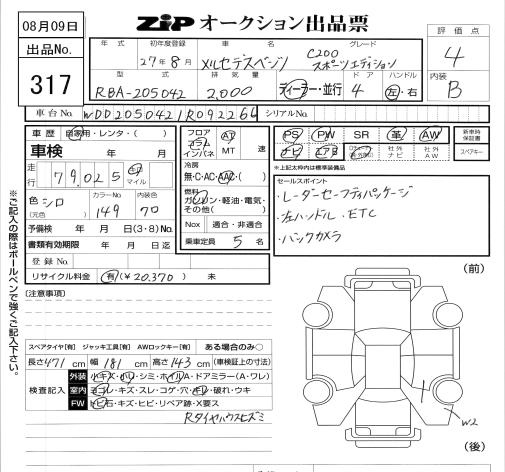 08月09日
ZIP オークション出品票
出品No.
317
評価点
4
内装
B
年式 初年度登録 車名 グレード
27年8月 メルセデスベンツ C200 スポーツエディション
型式 排気量 ドア ハンドル
RBA-205042 2,000 ディーラー・並行 4 左・右
車台No. WDD2050421R092266 シリアルNo.
車歴 自家用・レンタ・( )
車検 年 月 日
走行 79,025 km マイル
色 シロ (元色) カラーNo. 149 内装色 70
予備検 年 月 日(3・8)No.
書類有効期限 年 月 日迄
登録No.
リサイクル料金 有(¥20,370) 未
フロア コラム インパネ AT MT 速
冷房
無・C・AC・AAC( )
燃料
ガソリン・軽油・電気・その他( )
Nox 適合・非適合
乗車定員 5 名
PS PW SR 革 AW
新車時保証書
ナビ エアB 社外ナビ 社外AW
スペアキー
*上記太枠内は標準装備品
セールスポイント
・レーダーセーフティパッケージ
・左ハンドル・ETC
・バックカメラ
※ご記入の際はボールペンで強くご記入下さい。
(注意事項)
スペアタイヤ[有] ジャッキ工具[有] AWロックキー[有] ある場合のみ○
長さ471cm 幅181cm 高さ143cm (車検証上の寸法)
検査記入
外装 小キズ・小ヘコ・シミ・ホイルA・ドアミラー(A・ワレ)
室内 ヨゴレ・キズ・スレ・コゲ・穴・キレ・破れ・ウキ
FW トビ石・キズ・ヒビ・リペア跡・X要ス
RタイヤハウスヒズミW2
(前)
W2
(後)